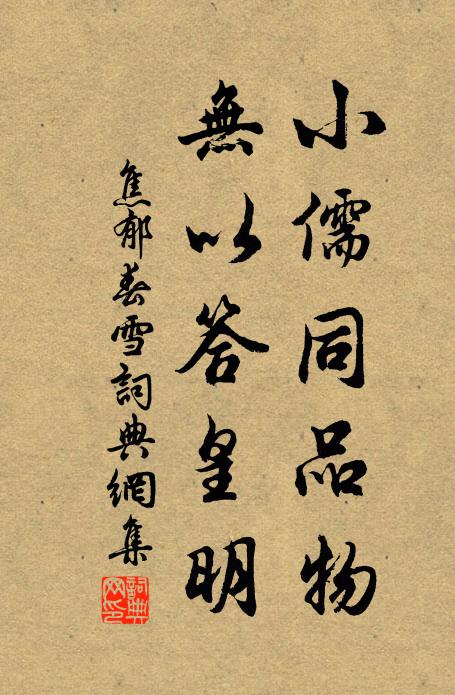 小儒同品物
無以答皇明
焦郁春雪詞典網集
詞典网印